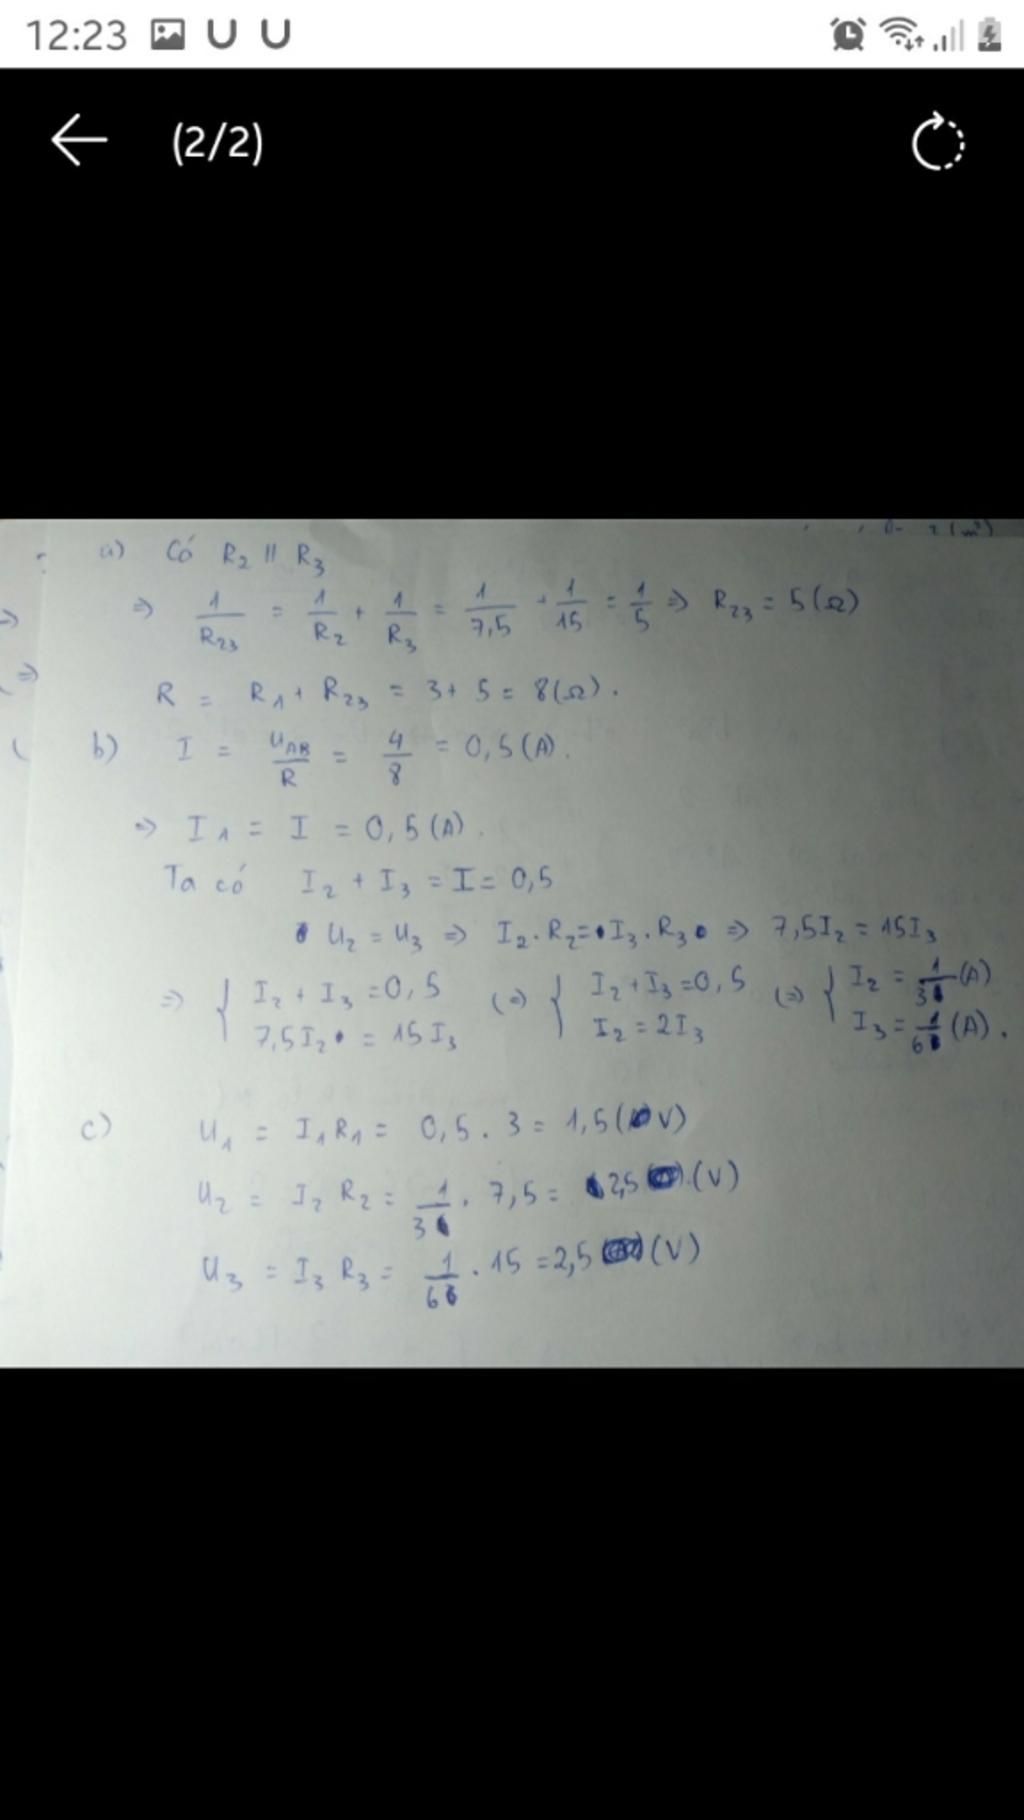 12:23
(2/2)
a) Có R₂ // R₃
⇒ 1/R₂₃ = 1/R₂ + 1/R₃ = 1/7,5 + 1/15 = 1/5 ⇒ R₂₃ = 5(Ω)
R = R₁ + R₂₃ = 3 + 5 = 8(Ω).
b) I = U_AB/R = 4/8 = 0,5(A).
⇒ I₁ = I = 0,5(A).
Ta có I₂ + I₃ = I = 0,5
U₂ = U₃ ⇒ I₂.R₂ = I₃.R₃ ⇒ 7,5I₂ = 15I₃
⇒ { I₂ + I₃ = 0,5 (⇒) { I₂ + I₃ = 0,5 (⇒) { I₂ = 1/3 (A)
7,5I₂ = 15I₃ I₂ = 2I₃ I₃ = 1/6 (A).
c) U₁ = I₁R₁ = 0,5 . 3 = 1,5(V)
U₂ = I₂ R₂ = 1/3 . 7,5 = 2,5 (V)
U₃ = I₃ R₃ = 1/6 . 15 = 2,5 (V)